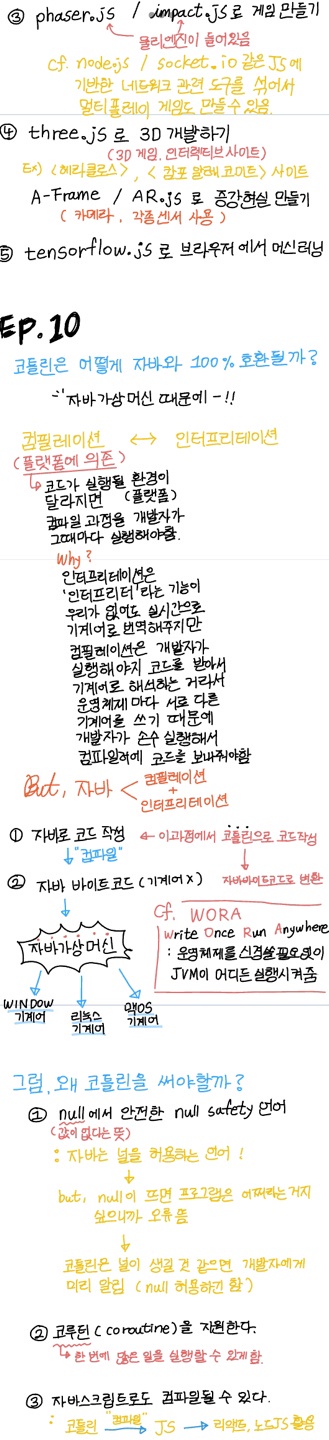 ③ phaser.js / impact.js로 게임 만들기
물리엔진이 들어있음
cf. node.js / socket.io 같은 JS에
기반한 네트워크 관련 도구를 섞어서
멀티플레이 게임도 만들 수 있음.
④ three.js로 3D 개발하기
(3D 게임, 인터랙티브사이트)
Ex) <헤라클로스>, <캄포 알레 코미트> 사이트
A-Frame / AR.js로 증강현실 만들기
(카메라, 각종센서 사용)
⑤ tensorflow.js로 브라우저에서 머신러닝
EP.10
코틀린은 어떻게 자바와 100% 호환될까?
자바가상머신 때문에-!!
컴필레이션 ↔ 인터프리테이션
(플랫폼에 의존)
↳ 코드가 실행될 환경이
달라지면 (플랫폼)
컴파일 과정을 개발자가
그때마다 실행해야함.
Why?
인터프리테이션은
'인터프리터'라는 기능이
우리가 없어도 실시간으로
기계어로 번역해주지만
컴필레이션은 개발자가
실행해야지 코드를 받아서
기계어로 해석하는 거라서
운영체제마다 서로 다른
기계어를 쓰기 때문에
개발자가 손수 실행해서
컴파일러에 코드를 보내줘야함
But, 자바 < 컴필레이션
+
인터프리테이션
① 자바로 코드 작성 ← 이과정에서 코틀린으로 코드작성
↓"컴파일"
② 자바 바이트코드 (기계어 X)
자바바이트코드로 변환
cf. WORA
Write Once Run Anywhere
: 운영체제를 신경쓸 필요없이
JVM이 어디든 실행시켜줌
자바가상머신
WINDOW 기계어
리눅스 기계어
맥OS 기계어
그럼, 왜 코틀린을 써야할까?
① null에서 안전한 null safety 언어
(값이 없다는 뜻)
: 자바는 널을 허용하는 언어!
but, null이 뜨면 프로그램은 어쩌라는거지
싶으니까 오류 뜸
코틀린은 널이 생길 것 같으면 개발자에게
미리 알림 (null 허용하긴 함)
② 코루틴(coroutine)을 지원한다.
↳ 한 번에 많은 일을 실행할 수 있게 함.
③ 자바스크립트로도 컴파일될 수 있다.
: 코틀린 "컴파일" → JS → 리액트, 노드JS 활용